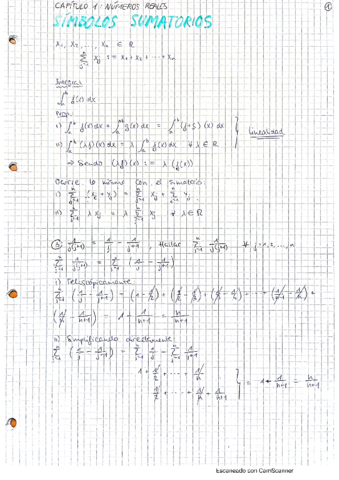 CAPÍTULO 1: NÚMEROS REALES
①
SÍMBOLOS SUMATORIOS
x₁, x₂, ..., xₙ ∈ ℝ
∑ⱼ₌₁ⁿ xⱼ := x₁ + x₂ + ... + xₙ
Integral
∫ₐᵇ f(x) dx
Prop.
i) ∫ₐᵇ f(x) dx + ∫ₐᵇ g(x) dx = ∫ₐᵇ (f+g)(x) dx
Linealidad
ii) ∫ₐᵇ (λf)(x) dx = λ ∫ₐᵇ f(x) dx ∀ λ ∈ ℝ
⇒ Siendo (λf)(x) := λ (f(x))
Ocurre lo mismo con el sumatorio:
i) ∑ⱼ₌₁ⁿ (xⱼ + yⱼ) = ∑ⱼ₌₁ⁿ xⱼ + ∑ⱼ₌₁ⁿ yⱼ
ii) ∑ⱼ₌₁ⁿ λ xⱼ = λ ∑ⱼ₌₁ⁿ xⱼ ∀ λ ∈ ℝ
1/j(j+1) = 1/j - 1/j+1, Hallar ∑ⱼ₌₁ⁿ 1/j(j+1) ∀ j = 1, 2, ..., n
∑ⱼ₌₁ⁿ 1/j(j+1) = ∑ⱼ₌₁ⁿ (1/j - 1/j+1)
i) Telescópicamente
∑ⱼ₌₁ⁿ (1/j - 1/j+1) = (1 - 1/2) + (1/2 - 1/3) + (1/3 - 1/4) + ... + (1/n-1 - 1/n) +
(1/n - 1/n+1) = 1 - 1/n+1 = n/n+1
ii) Simplificando directamente
∑ⱼ₌₁ⁿ (1/j - 1/j+1) = ∑ⱼ₌₁ⁿ 1/j - ∑ⱼ₌₁ⁿ 1/j+1
1 + 1/2 + ... + 1/n
1/2 + ... + 1/n + 1/n+1
= 1 + 1/n+1 = n/n+1
Escaneado con CamScanner